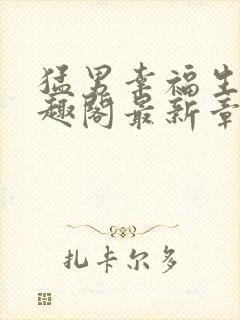 猛男幸福生
趣阁最新章
扎卡尔多